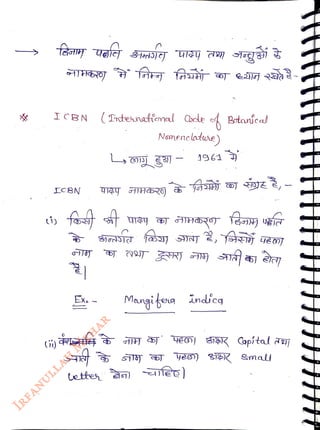 → द्विनाम पद्धति अन्तर्गत पादप तथा जन्तुओं के
नामकरण में निम्न नियमों का ध्यान रखते हैं-
※ ICBN (International Code of Botanical
Nomenclature)
↳ लागू हुआ - 1961 में
ICBN पादप नामकरण के नियमों का संग्रह है,-
(i) किसी भी पादप का नामकरण द्विनाम पद्धति
के अन्तर्गत किया जाता है, जिसमें पहला
नाम का तथा दूसरा नाम जाती का होता
है।
Ex. - Mangifera indica
(ii) के नाम का पहला अक्षर Capital तथा
जाती के नाम का पहला अक्षर Small
Letter होना चाहिए।